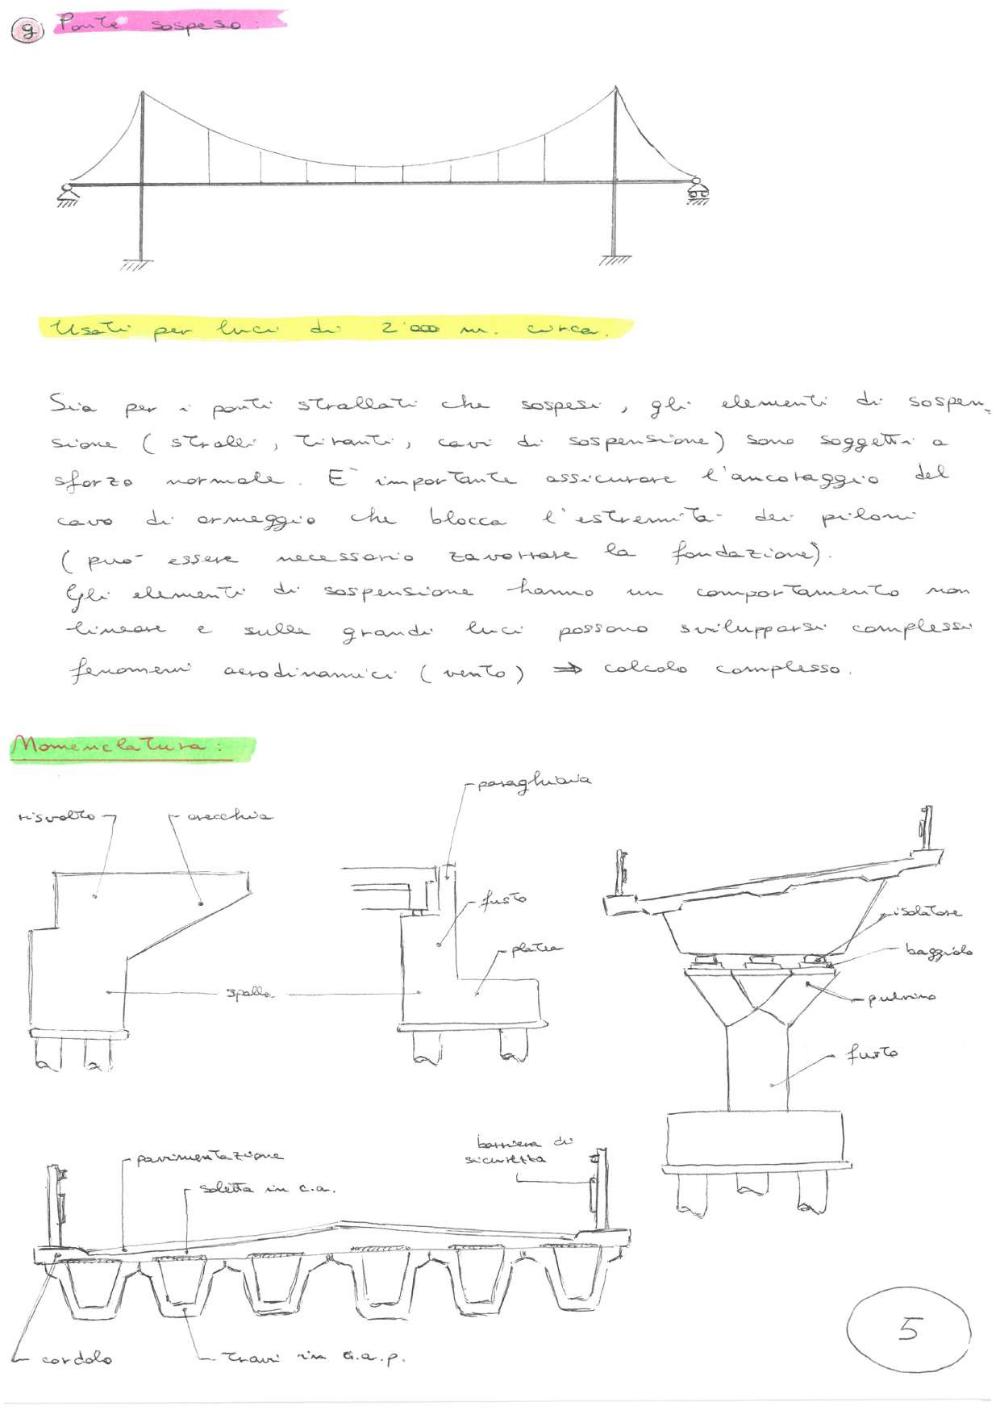 g Ponte sospeso:
Usati per luci di 2'000 m. circa.
Sia per i ponti strallati che sospesi, gli elementi di sospen-
sione (stralli, tiranti, cavi di sospensione) sono soggetti a
sforzo normale. E' importante assicurare l'ancoraggio del
cavo di ormeggio che blocca l'estremità dei piloni
(può essere necessario zavorrare la fondazione).
Gli elementi di sospensione hanno un comportamento non
lineare e sulle grandi luci possono svilupparsi complessi
fenomeni aerodinamici (vento) ⇒ calcolo complesso.
Nomenclatura:
risvolto
orecchia
paraghiaia
fusto
platea
spalla
isolatore
baggiolo
pulvino
fusto
pavimentazione
soletta in c.a.
barriera di
sicurezza
cordolo
travi in c.a.p.
5